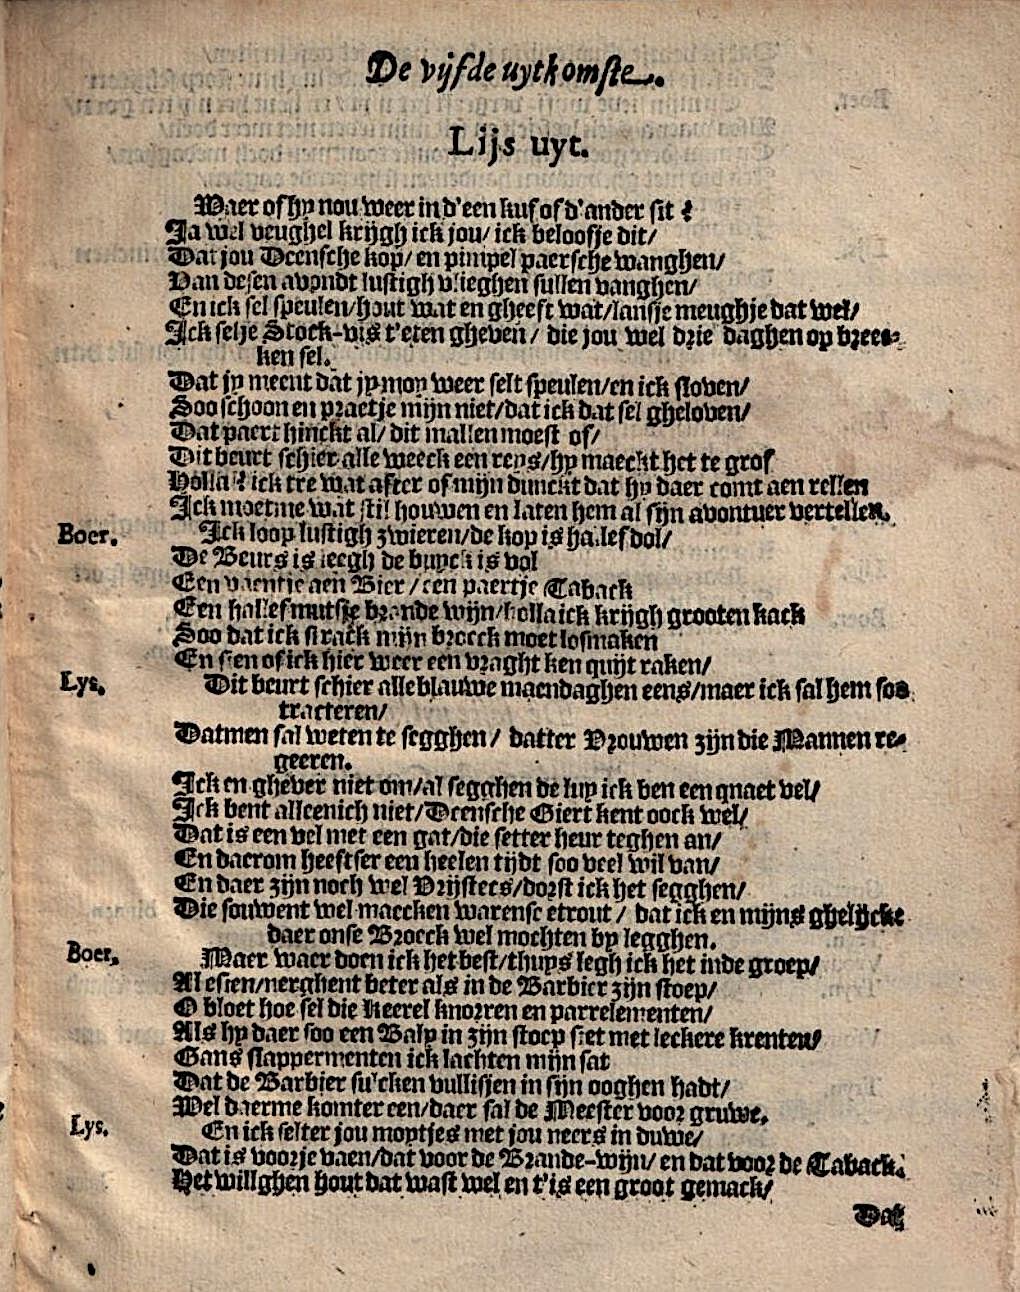 De vijfde uytkomste.
Lijs uyt.
Waer of hy nou weer in d'een kuf of d'ander sit?
Ja wel veughel krijgh ick jou/ ick beloofje dit/
Dat jou Deensche kop/ en pimpel paersche wanghen/
Van desen avondt lustigh vlieghen sullen vanghen/
En ick sel speulen/hout wat en gheeft wat/lansje meughje dat wel/
Ick selje Stock-vis t'eten gheven/ die jou wel drie daghen op bree-
ken sel.
Dat jy meent dat jy moy weer selt speulen/en ick sloven/
Soo schoon en praetje mijn niet/dat ick dat sel gheloven/
Dat paert hinckt al/ dit mallen moest of/
Dit beurt schier alle weeck een reys/hy maeckt het te grof
Holla! ick tre wat after of mijn dunckt dat hy daer comt aen rellen
Ick moetme wat stil houwen en laten hem al sijn avontuer vertellen.
Boer. Ick loop lustigh zwieren/de kop is hallef dol/
De Beurs is leegh de buyck is vol
Een vaentje aen Bier/een paertje Taback
Een hallef mutsje brande wijn/holla ick krijgh grooten kack
Soo dat ick strack mijn broeck moet losmaken
En sien of ick hier weer een vraght ken quijt raken/
Lys. Dit beurt schier alle blauwe maendaghen eens/maer ick sal hem soo
tracteren/
Datmen sal weten te segghen/ datter Vrouwen zijn die Mannen re-
geeren.
Ick en ghever niet om/al segghen de luy ick ben een quaet vel/
Ick bent alleenich niet/Deensche Giert kent oock wel/
Dat is een vel met een gat/die setter heur teghen an/
En daerom heeftser een heelen tijdt soo veel wil van/
En daer zijn noch wel Vrijsters/dorst ick het segghen/
Die souwent wel maecken warense etrout/ dat ick en mijns ghelijcke
daer onse Broeck wel mochten by legghen.
Boer. Maer waer doen ick het best/thuys legh ick het inde groep/
Al esien/nerghent beter als in de Barbier zijn stoep/
O bloet hoe sel die Keerel knorren en parrelementen/
Als hy daer soo een Baly in zijn stoep siet met leckere krenten/
Gans slappermenten ick lachten mijn sat
Dat de Barbier sulcken vullisjen in sijn ooghen hadt/
Wel daerme komter een/daer sal de Meester voor gruwe.
Lys. En ick selter jou moptjes met jou neers in duwe/
Dat is voorje vaen/dat voor de Brande-wijn/ en dat voor de Taback.
Het willghen hout dat wast wel en t'is een groot gemack/
Dat